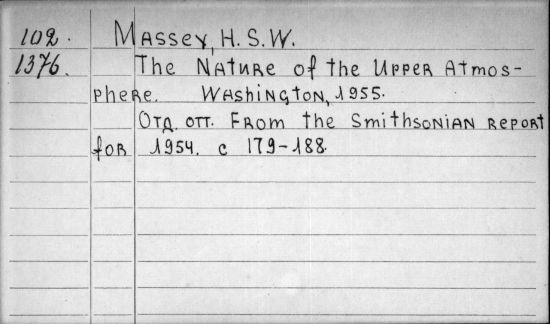 102. Massey, H.S.W.
1376. The Nature of the Upper Atmos-
phere. Washington, 1955.
Отд. отт. From the Smithsonian Report
for 1954. с 179-188.